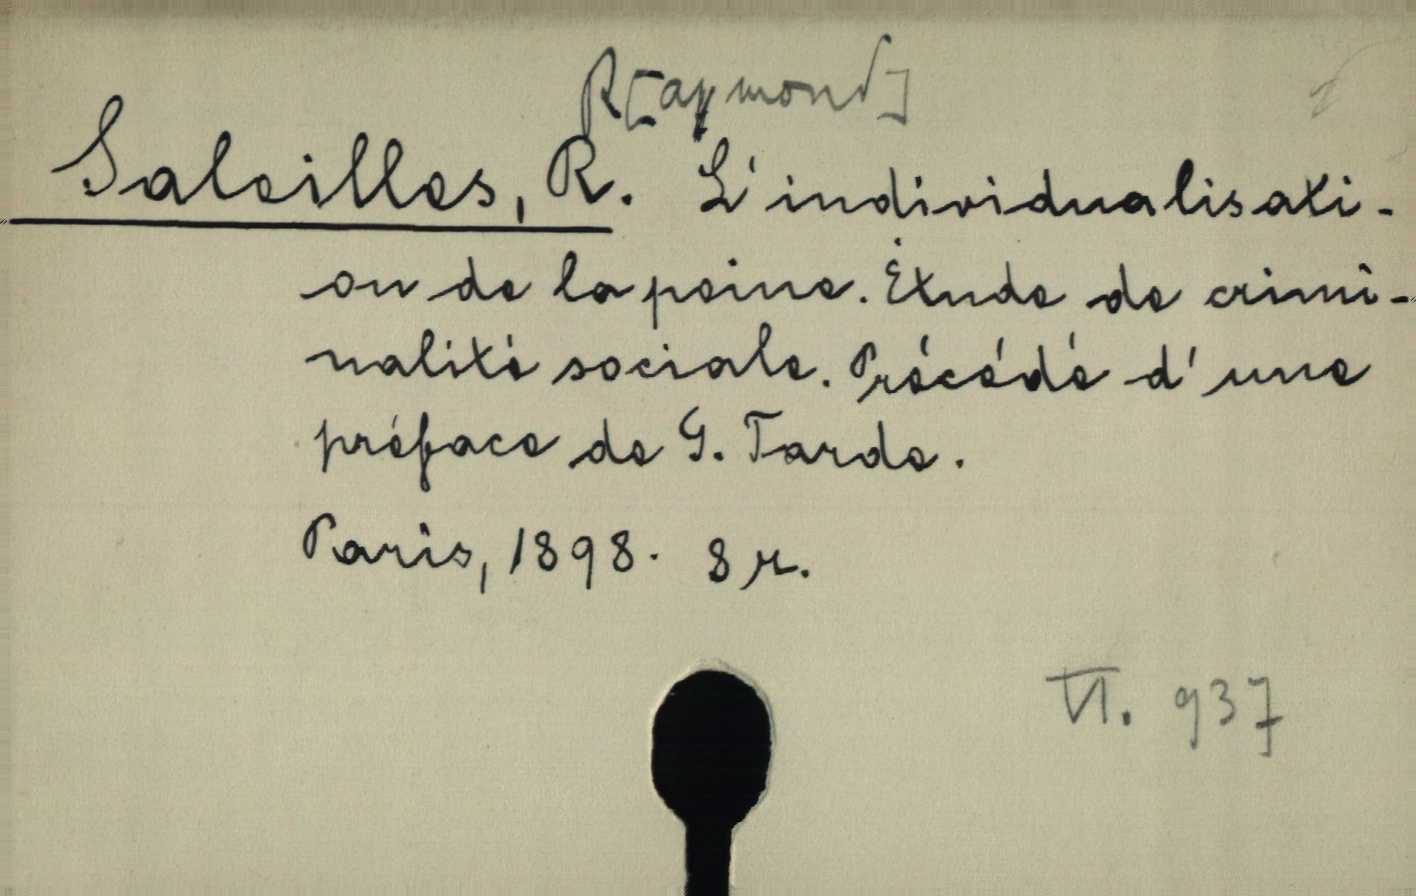 R[aymond]
Saleilles, R. L'individualisati-
on de la peine. Étude de crimi-
nalité sociale. Précédé d'une
préface de G. Tarde.
Paris, 1898. 8 r.
VI. 937